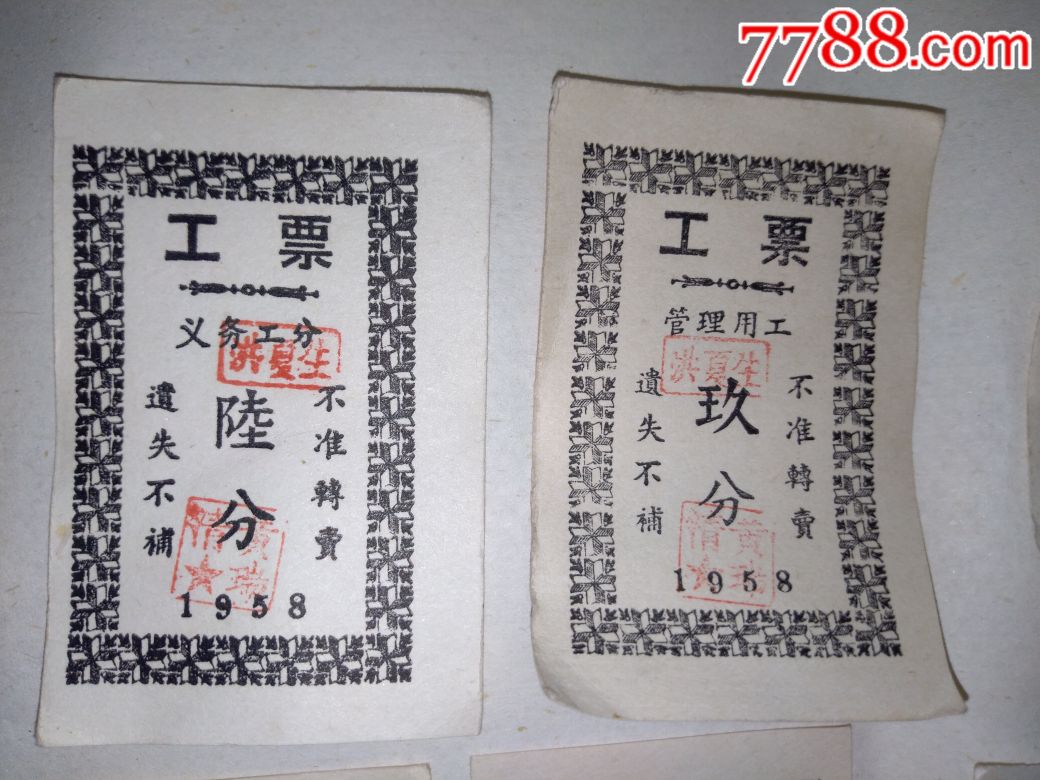 7788.com
工票
义务工分
洪夏生
陸分
不准轉賣
遺失不補
黄瑞清
1958
工票
管理用工
洪夏生
玖分
不准轉賣
遺失不補
黄瑞清
1958